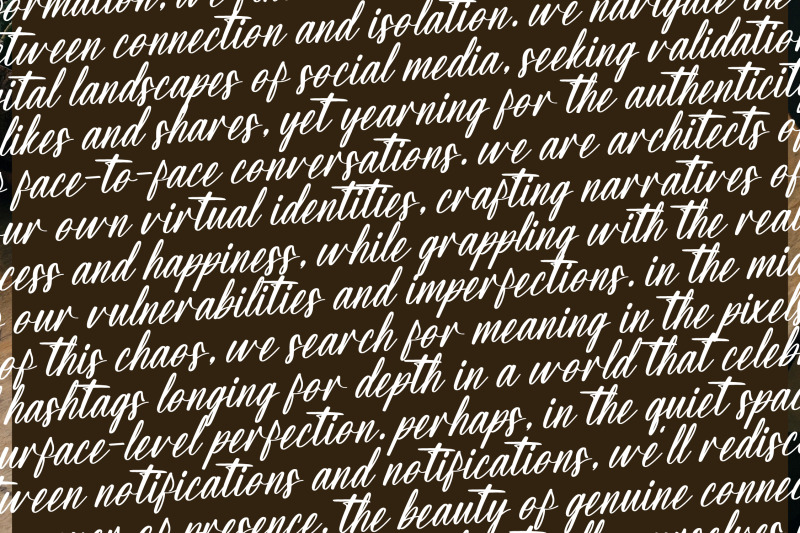 tween connection and isolation. we navigate the
ital landscapes of social media, seeking validation
likes and shares, yet yearning for the authenticit
face-to-face conversations. we are architects of
ur own virtual identities, crafting narratives of
cess and happiness, while grappling with the real
our vulnerabilities and imperfections. in the mid
of this chaos, we search for meaning in the pixels
hashtags longing for depth in a world that celeb
urface-level perfection. perhaps, in the quiet spac
tween notifications and notifications, we'll redisco
of presence, the beauty of genuine connec